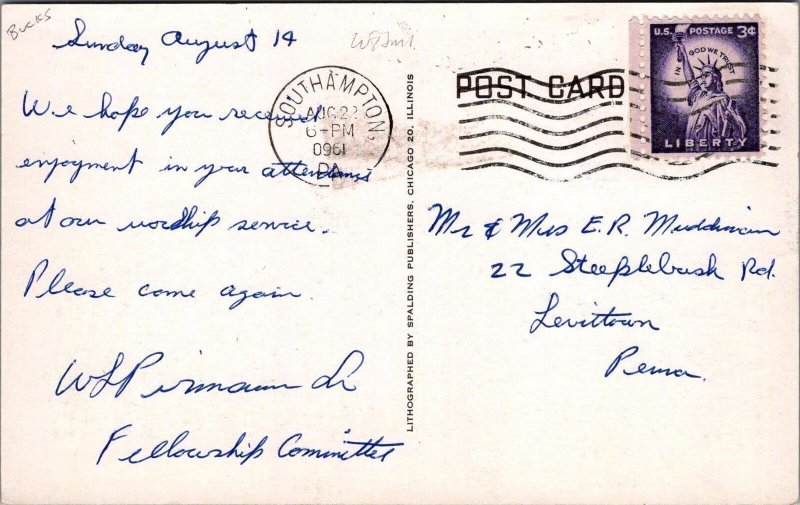 Bucks
Sunday August 14
We hope you received
enjoyment in your attendance
at our worship service.
Please come again.
W L Pirmann Jr
Fellowship Committee
SOUTHAMPTON,
AUG 22
6-PM
1960
PA
LITHOGRAPHED BY SPALDING PUBLISHERS, CHICAGO 20, ILLINOIS
POST CARD
U.S. POSTAGE 3¢
IN GOD WE TRUST
LIBERTY
Mr & Mrs E.R.
22 Steeplebush Rd.
Levittown
Penna.